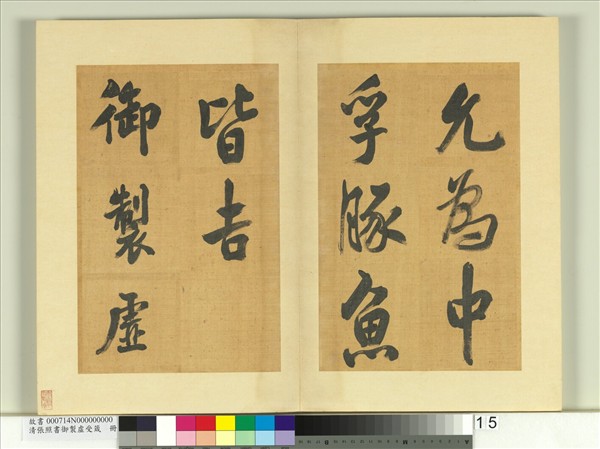 允為中
孚豚魚
皆吉
御製虛
故書 000714N000000000
清張照書御製虛受箴 冊
15